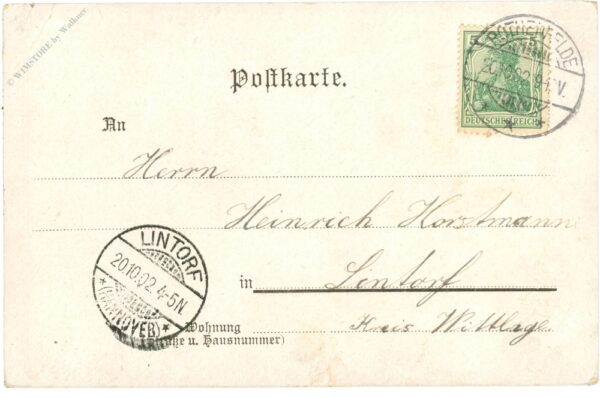 © WIMSTORE by Walkner
Postkarte.
5 5
DEUTSCHES REICH
ROTHENFELDE
20.10.02.
An
Herrn
Heinrich Horstmann
in Lintorf
Kreis Wittlage
LINTORF
20.10.02.4-5N
*(HANNOVER)*
Wohnung
u. Hausnummer)